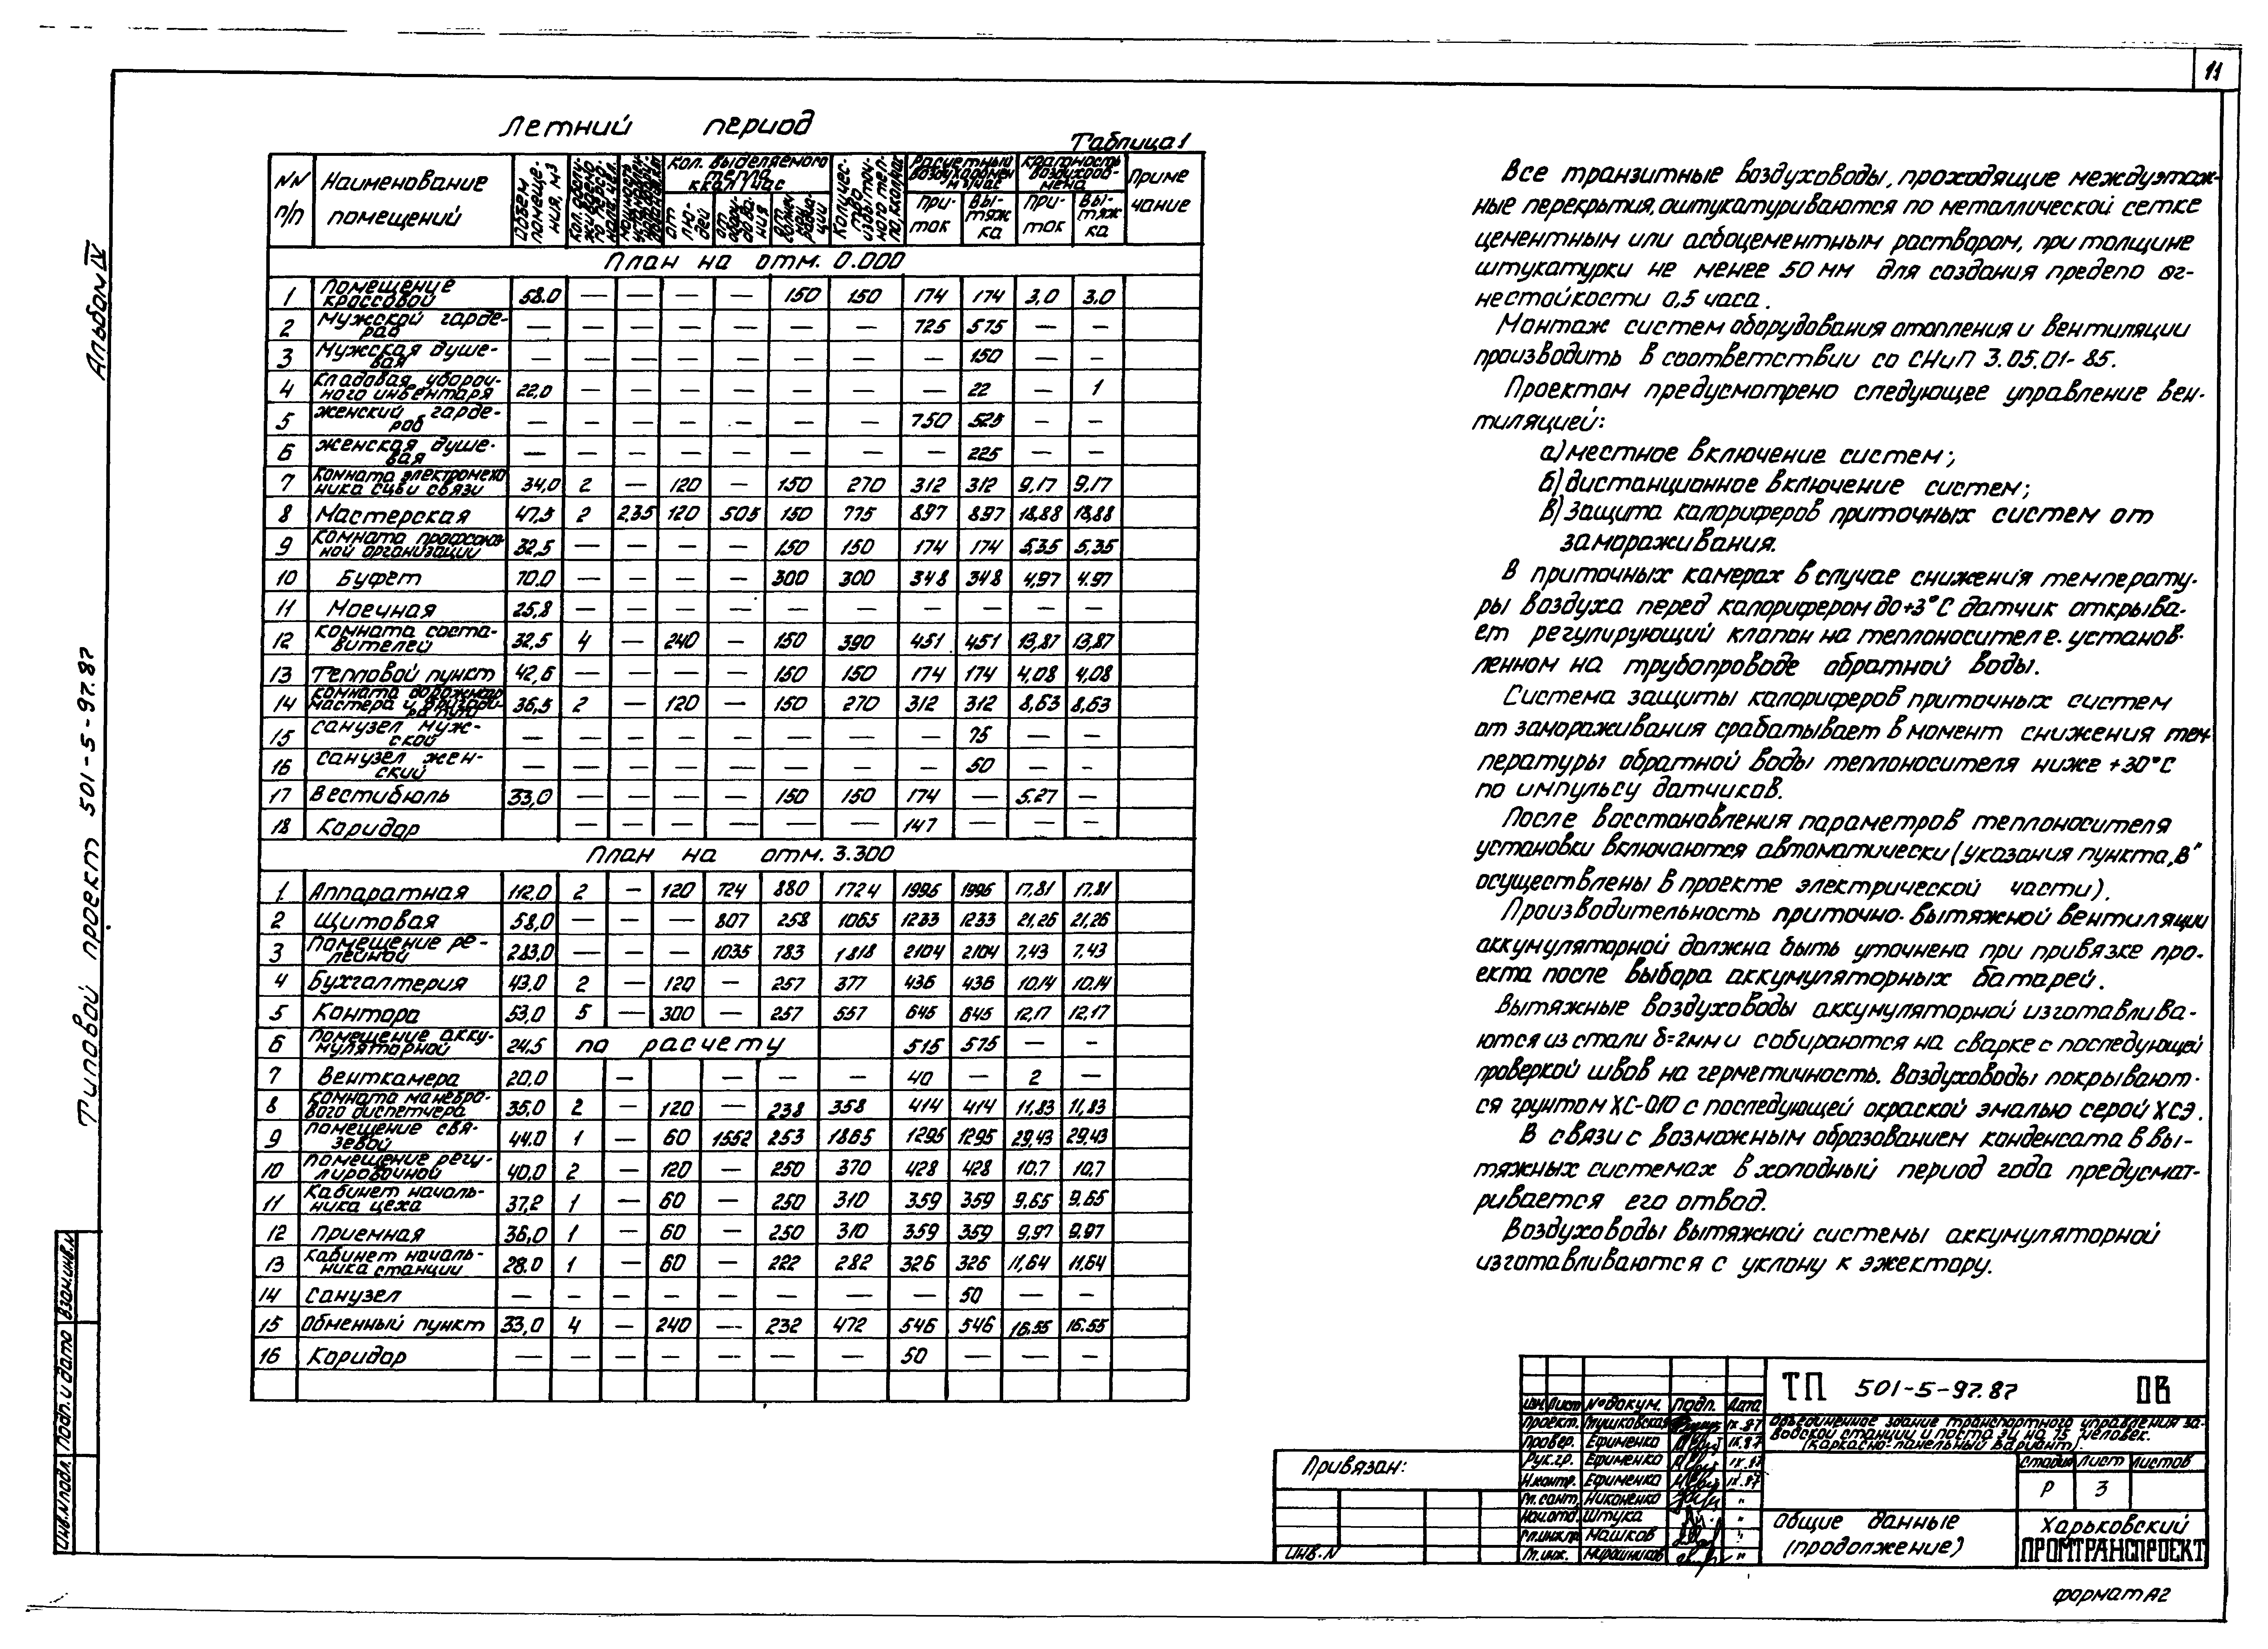 11
Альбом IV
Типовой проект 501-5-97.87
Летний период
Таблица 1
NN п/п | Наименование помещений | Объем помеще-ния, м³ | Кол. выделяемого тепла ккал/час | от лю-дей | Количес-тво избыточ-ного теп-ла, ккал/час | Расчетный воздухообмен м³/час | При-ток | Вы-тяж-ка | Кратность воздухооб-мена | При-ток | Вы-тяж-ка | Приме чание
План на отм. 0.000
1 Помещение кроссовой 58.0 — — — — 150 150 174 174 3,0 3,0
2 Мужской гарде-роб — — — — — — — 725 575 — —
3 Мужская душе-вая — — — — — — — — 150 — —
4 Кладовая, убороч-ного инвентаря 22,0 — — — — — — — 22 — 1
5 Женский гарде-роб — — — — — — — 750 525 — —
6 Женская душе-вая — — — — — — — — 225 — —
7 Комната электромеха ника СЦБ и связи 34,0 2 — 120 — 150 270 312 312 9,17 9,17
8 Мастерская 47,5 2 2,35 120 505 150 775 897 897 18,88 18,88
9 Комната профсоюз ной организации 32,5 — — — — 150 150 174 174 5,35 5,35
10 Буфет 70.0 — — — — 300 300 348 348 4,97 4.97
11 Моечная 25,8 — — — — — — — — — —
12 Комната соста-вителей 32,5 4 — 240 — 150 390 451 451 13,87 13,87
13 Тепловой пункт 42,6 — — — — 150 150 174 174 4,08 4,08
14 Комната дорожного мастера и бригади-ра пути 36,5 2 — 120 — 150 270 312 312 8,63 8,63
15 Санузел муж-ской — — — — — — — — 75 — —
16 Санузел жен-ский — — — — — — — — 50 — —
17 Вестибюль 33,0 — — — — 150 150 174 — 5.27 —
18 Коридор — — — — — — 147 — — —
План на отм. 3.300
1 Аппаратная 112.0 2 — 120 724 880 1724 1996 1996 17.81 17.81
2 Щитовая 58,0 — — — 807 258 1065 1233 1233 21,26 21,26
3 Помещение ре-лейной 283,0 — — — 1035 783 1818 2104 2104 7,43 7,43
4 Бухгалтерия 43.0 2 — 120 — 257 377 436 436 10.14 10.14
5 Контора 53,0 5 — 300 — 257 557 645 645 12,17 12,17
6 Помещение акку-муляторной 24,5 по расчету 515 575 — —
7 Венткамера 20.0 — — — — 40 — 2 —
8 Комната маневро-вого диспетчера 35,0 2 — 120 — 238 358 414 414 11,83 11,83
9 Помещение свя-зевой 44.0 1 — 60 1552 253 1865 1295 1295 29,43 29,43
10 Помещение регу-лировочной 40,0 2 — 120 — 250 370 428 428 10.7 10.7
11 Кабинет началь-ника цеха 37,2 1 — 60 — 250 310 359 359 9,65 9,65
12 Приемная 36,0 1 — 60 — 250 310 359 359 9,97 9.97
13 Кабинет началь-ника станции 28.0 1 — 60 — 222 282 326 326 11,64 11.64
14 Санузел — — — — — — — — 50 — —
15 Обменный пункт 33,0 4 — 240 — 232 472 546 546 16.55 16.55
16 Коридор — — — — — — — 50 — — —
Все транзитные воздуховоды, проходящие междуэтаж-
ные перекрытия, оштукатуриваются по металлической сетке
цементным или асбоцементным раствором, при толщине
штукатурки не менее 50 мм для создания предела ог-
нестойкости 0,5 часа.
Монтаж систем оборудования отопления и вентиляции
производить в соответствии со СНиП 3.05.01-85.
Проектом предусмотрено следующее управление вен-
тиляцией:
а) местное включение систем;
б) дистанционное включение систем;
в) защита калориферов приточных систем от
замораживания.
В приточных камерах в случае снижения температу-
ры воздуха перед калорифером до +3°С датчик открыва-
ет регулирующий клапан на теплоносителе. установ-
ленном на трубопроводе обратной воды.
Система защиты калориферов приточных систем
от замораживания срабатывает в момент снижения тем
пературы обратной воды теплоносителя ниже +30°С
по импульсу датчиков.
После восстановления параметров теплоносителя
установки включаются автоматически (указания пункта „в"
осуществлены в проекте электрической части).
Производительность приточно-вытяжной вентиляции
аккумуляторной должна быть уточнена при привязке про-
екта после выбора аккумуляторных батарей.
Вытяжные воздуховоды аккумуляторной изготавлива-
ются из стали δ=2мм и собираются на сварке с последующей
проверкой швов на герметичность. Воздуховоды покрывают-
ся грунтом ХС-010 с последующей окраской эмалью серой ХСЭ.
В связи с возможным образованием конденсата в вы-
тяжных системах в холодный период года предусмат-
ривается его отвод.
Воздуховоды вытяжной системы аккумуляторной
изготавливаются с уклону к эжектору.
Взам.инв.N
Подп. и дата
Инв.N подл.
Привязан:
Инв.N
Изм. Лист № докум. Подп. Дата
Проект. Глушковская IX.87
Провер. Ефименко IX.87
Рук.гр. Ефименко IX.87
Н.контр. Ефименко IX.87
Гл.сант. Никоненко "
Нач.отд. Штука "
Гл.инж.пр. Машков "
Гл.инж. Мирошников "
ТП 501-5-97.87 ОВ
Объединенное здание транспортного управления за-
водской станции и поста эц на 75 человек.
(каркасно-панельный вариант).
Стадия Лист Листов
Р 3
Общие данные
(продолжение)
Харьковский
ПРОМТРАНСПРОЕКТ
формат А2